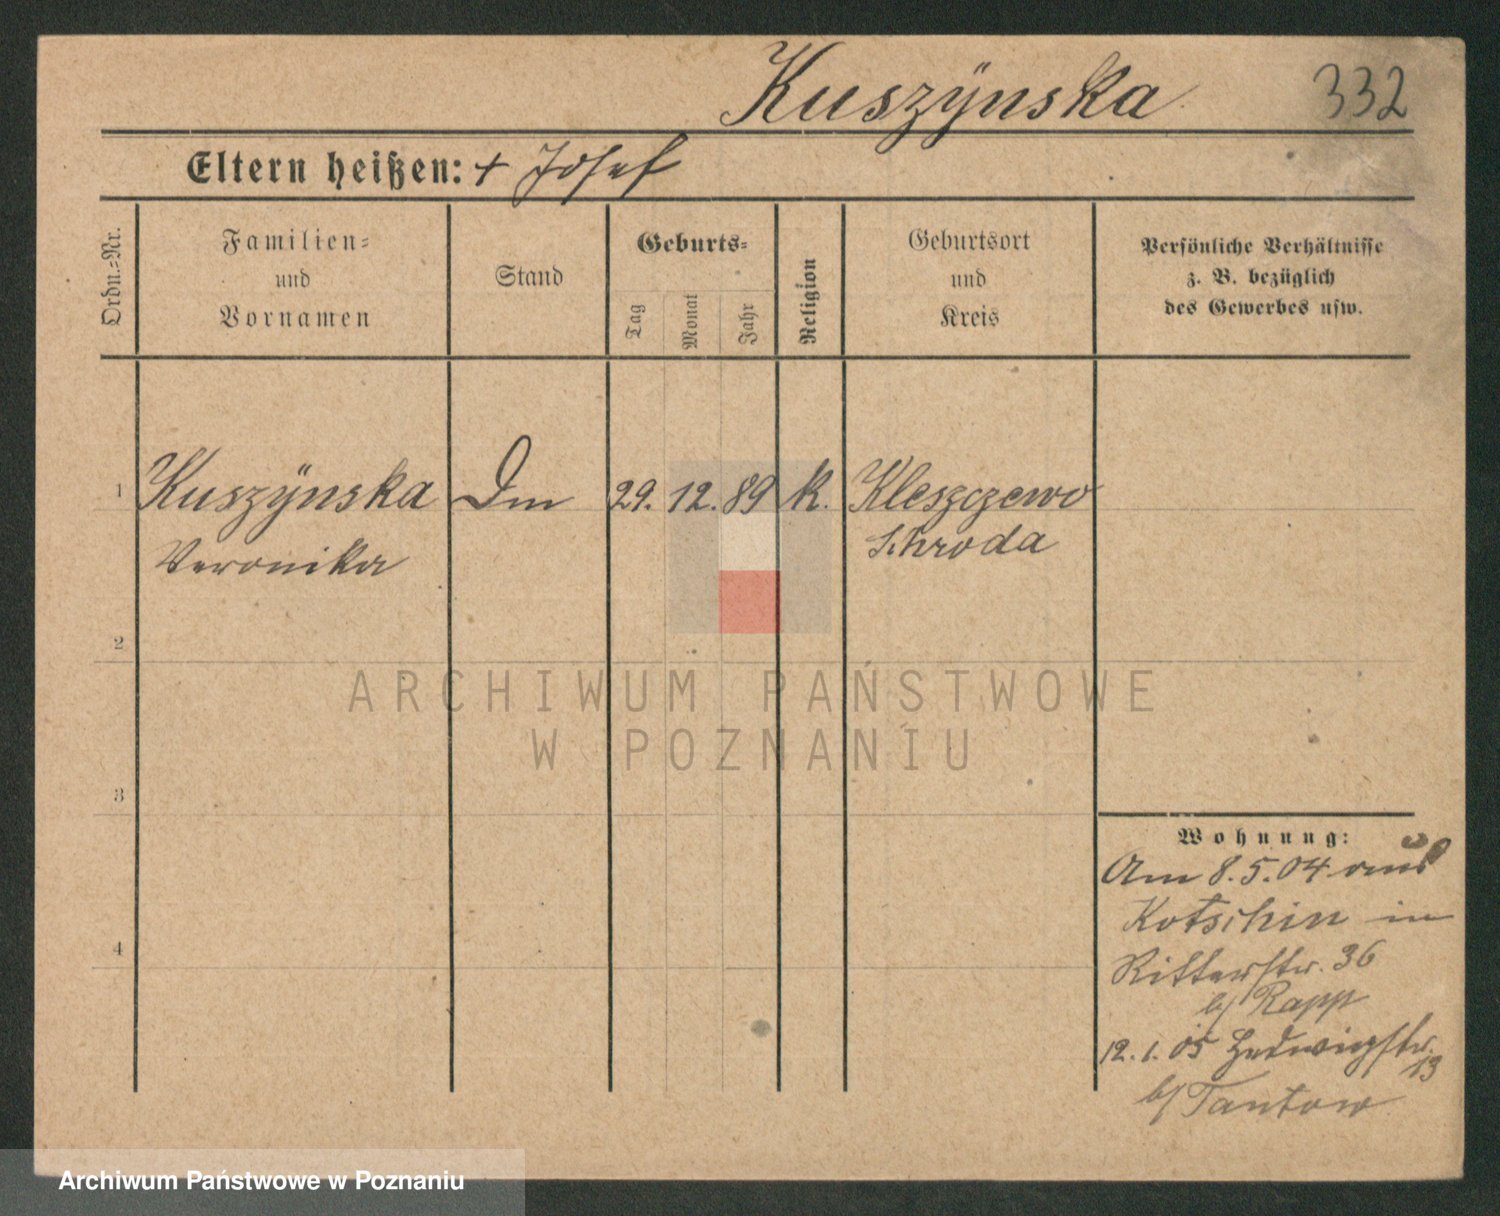 Kuszÿnska
332
Eltern heißen: + Josef
Ordn.-Nr.
Familien-
und
Vornamen
Stand
Geburts-
Tag
Monat
Jahr
Religion
Geburtsort
und
Kreis
Persönliche Verhältnisse
z. B. bezüglich
des Gewerbes usw.
1 Kuszÿnska Dm 29. 12. 89 k. Kleszczewo
Veronika Schroda
2
ARCHIWUM PAŃSTWOWE
W POZNANIU
3
Wohnung:
Am 8.5.04 aus
Kotschin in
4
Ritterstr. 36
b/ Rapp
12.1.05 Hedwigstr.
13
b/ Tantow
Archiwum Państwowe w Poznaniu